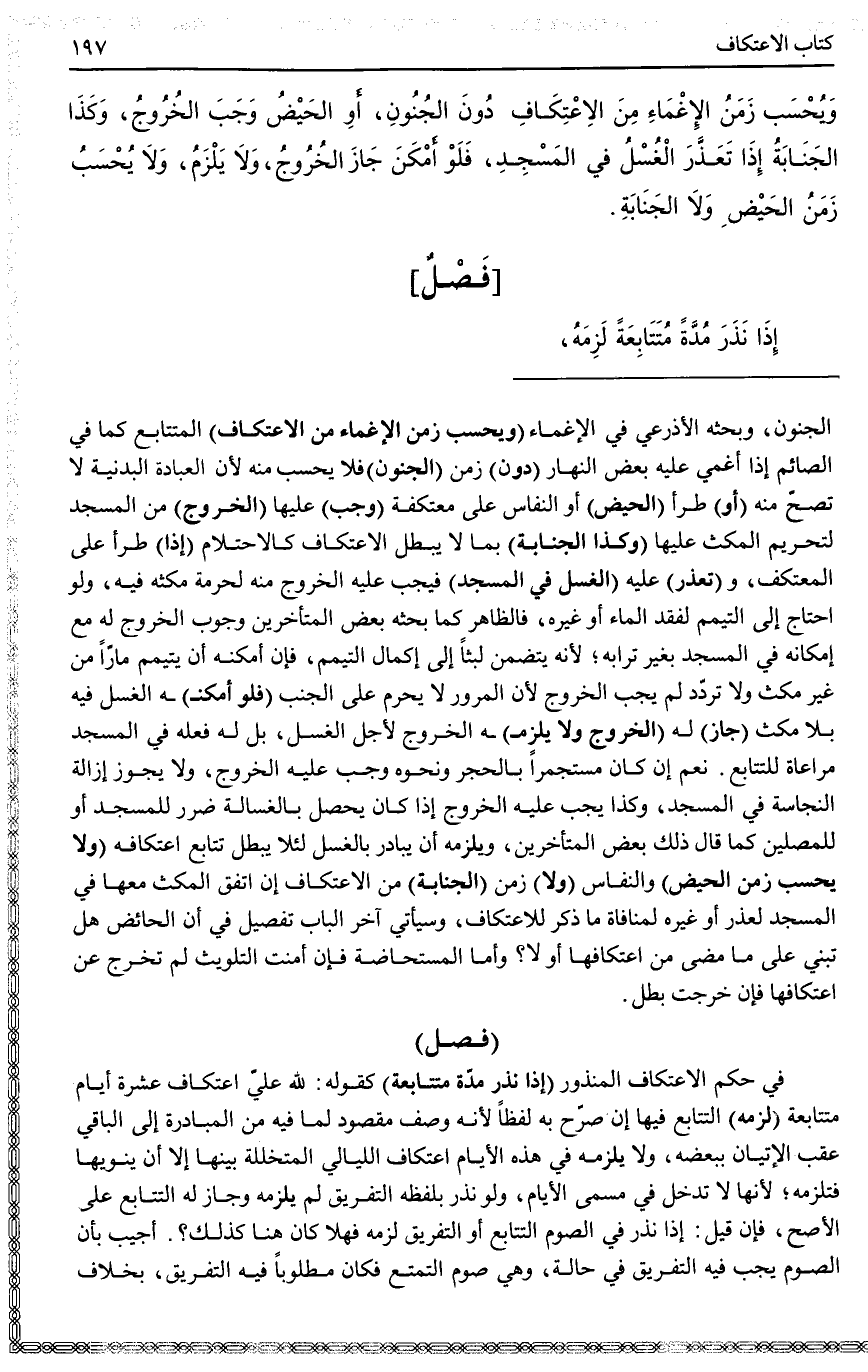 كتاب الاعتكاف ١٩٧
وَيُحْسَب زَمَنُ الإِغْمَاءِ مِنَ الِاعْتِكَـافِ دُونَ الجُنُونِ، أَوِ الحَيْضُ وَجَبَ الخُرُوجُ، وَكَذَا
الجَنَـابَةُ إِذَا تَعَـذَّرَ الْغُسْلُ في المَسْجِـدِ، فَلَوْ أَمْكَنَ جَازَ الخُرُوجُ، وَلَا يَلْزَمُ، وَلَا يُحْسَبُ
زَمَنُ الحَيْضِ وَلَا الجَنَابَةِ.
[فَـصْـلٌ]
إِذَا نَذَرَ مُدَّةً مُتَتَابِعَةً لَزِمَهُ،
الجنون، وبحثه الأذرعي في الإغمـاء (ويحسب زمن الإغماء من الاعتكـاف) المتتابـع كما في
الصائم إذا أغمي عليه بعض النهار (دون) زمن (الجنون) فلا يحسب منه لأن العبادة البدنيـة لا
تصـحّ منه (أو) طـرأ (الحيض) أو النفاس على معتكفـة (وجب) عليها (الخـروج) من المسجد
لتحريم المكث عليها (وكـذا الجنـابـة) بمـا لا يبـطل الاعتكـاف كـالاحتـلام (إذا) طـرأ على
المعتكف، و (تعذر) عليه (الغسل في المسجد) فيجب عليه الخروج منه لحرمة مكثه فيـه، ولو
احتاج إلى التيمم لفقد الماء أو غيره، فالظاهر كما بحثه بعض المتأخرين وجوب الخروج له مع
إمكانه في المسجد بغير ترابه؛ لأنه يتضمن لبثاً إلى إكمال التيمم، فإن أمكنـه أن يتيمم مارّاً من
غير مكث ولا تردّد لم يجب الخروج لأن المرور لا يحرم على الجنب (فلو أمكنـ) ـه الغسل فيه
بـلا مكث (جاز) لـه (الخروج ولا يلزمـ) ـه الخـروج لأجل الغسـل، بل لـه فعله في المسجد
مراعاة للتتابع. نعم إن كـان مستجمراً بـالحجر ونحـوه وجـب عليـه الخروج، ولا يجـوز إزالة
النجاسة في المسجد، وكذا يجب عليـه الخروج إذا كـان يحصل بـالغسالـة ضرر للمسجـد أو
للمصلين كما قال ذلك بعض المتأخرين، ويلزمه أن يبادر بالغسل لئلا يبطل تتابع اعتكافـه (ولا
يحسب زمن الحيض) والنفـاس (ولا) زمن (الجنابة) من الاعتكـاف إن اتفق المكث معهـا في
المسجد لعذر أو غيره لمنافاة ما ذكر للاعتكاف، وسيأتي آخر الباب تفصيل في أن الحائض هل
تبني على مـا مضى من اعتكافهـا أو لا؟ وأمـا المستحـاضـة فـإن أمنت التلويث لم تخـرج عن
اعتكافها فإن خرجت بطل.
(فـصـل)
في حكم الاعتكاف المنذور (إذا نذر مدّة متتـابعة) كقـوله: لله عليّ اعتكـاف عشرة أيـام
متتابعة (لزمه) التتابع فيها إن صرّح به لفظاً لأنـه وصف مقصود لمـا فيه من المبـادرة إلى الباقي
عقب الإتيـان ببعضه، ولا يلزمـه في هذه الأيـام اعتكاف الليـالي المتخللة بينهـا إلا أن ينـويهـا
فتلزمه؛ لأنها لا تدخل في مسمى الأيام، ولو نذر بلفظه التفريق لم يلزمه وجاز له التتـابع على
الأصح، فإن قيل: إذا نذر في الصوم التتابع أو التفريق لزمه فهلا كان هنـا كذلـك؟. أجيب بأن
الصـوم يجب فيه التفريق في حالـة، وهي صوم التمتـع فكان مـطلوباً فيـه التفريـق، بخـلاف